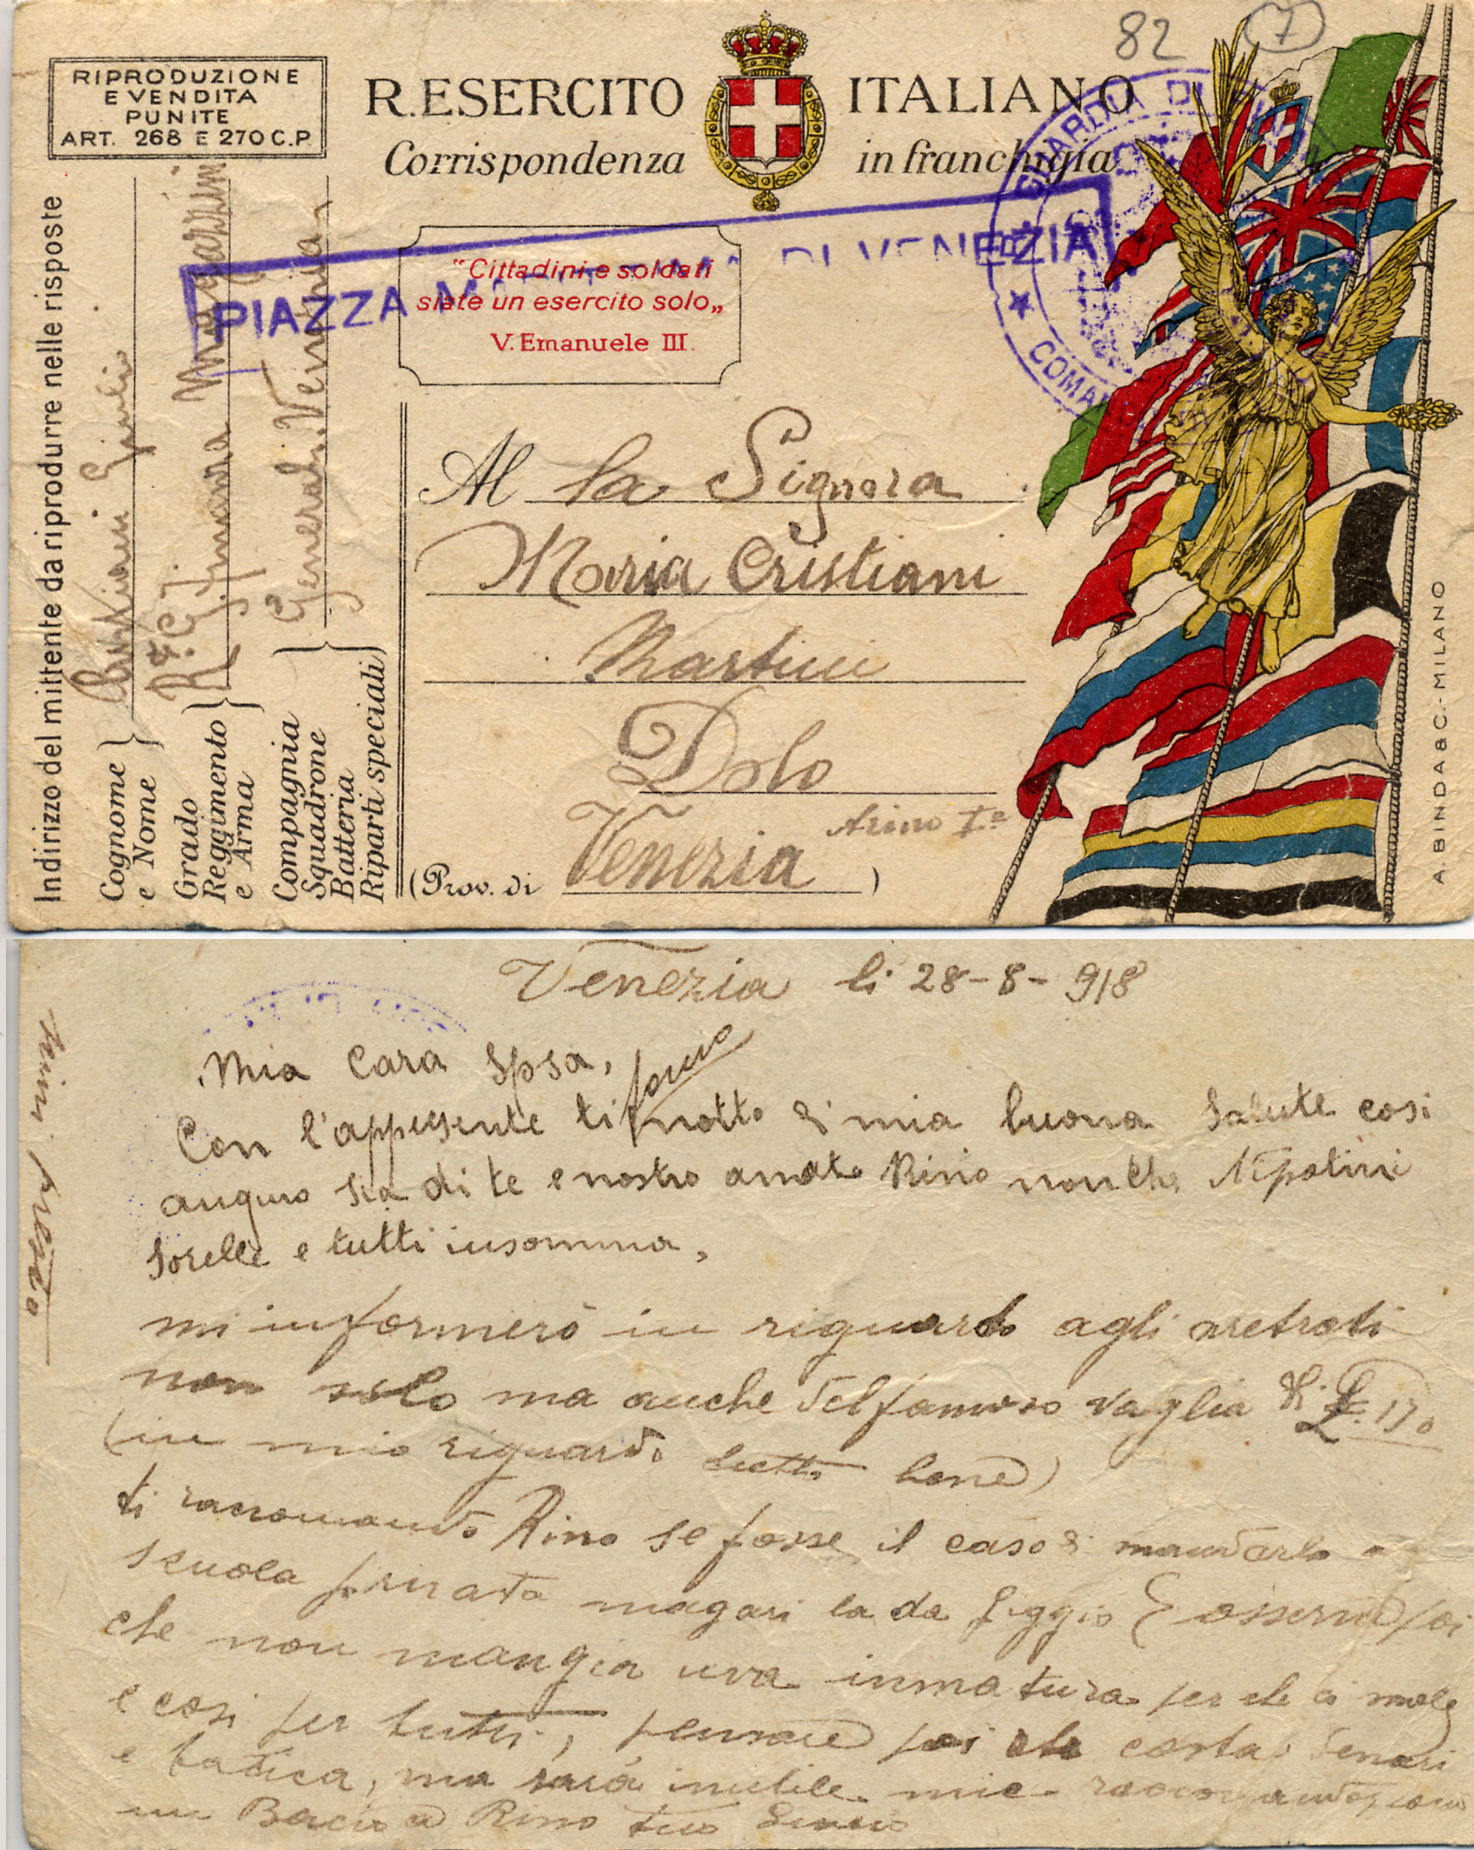 82 7
RIPRODUZIONE
E VENDITA
PUNITE
ART. 268 E 270 C.P.
R. ESERCITO ITALIANO
Corrispondenza in franchigia
GUARDIA DI
COMA
PIAZZA MA DI VENEZIA
"Cittadini e soldati
siate un esercito solo„
V. Emanuele III.
Indirizzo del mittente da riprodurre nelle risposte
Cognome
e Nome
Cristiani Giulio
Grado
Reggimento
e Arma
R. Finanza
Compagnia
Squadrone
Batteria
Riparti speciali
Generali. Venezia
Al la Signora
Maria Cristiani
Martini
Dolo
(Prov. di Venezia)
Arino
A. BINDA & C. - MILANO
Venezia li 28-8-918
Mia Cara Spsa,
Con l'appresente ti notto di mia buona Salute cosi
auguro sia di te e nostro amato Rino nonche Nipotini
Sorelle e tutti insomma,
mi informerò in riguardo agli aretrati
non solo ma anche del famoso vaglia di £. 170
(in mio riguardo tutto bene)
ti raccomando Rino se fosse il caso di mandarlo a
scuola privata magari la da Giggio E osserva poi
che non mangia uva inmatura per che ci male
e cosi per tutti, pensare poi che costa denari
e fatica, ma sarà inutile mie
un Bacio a Rino tuo Giulio
scrivi presto